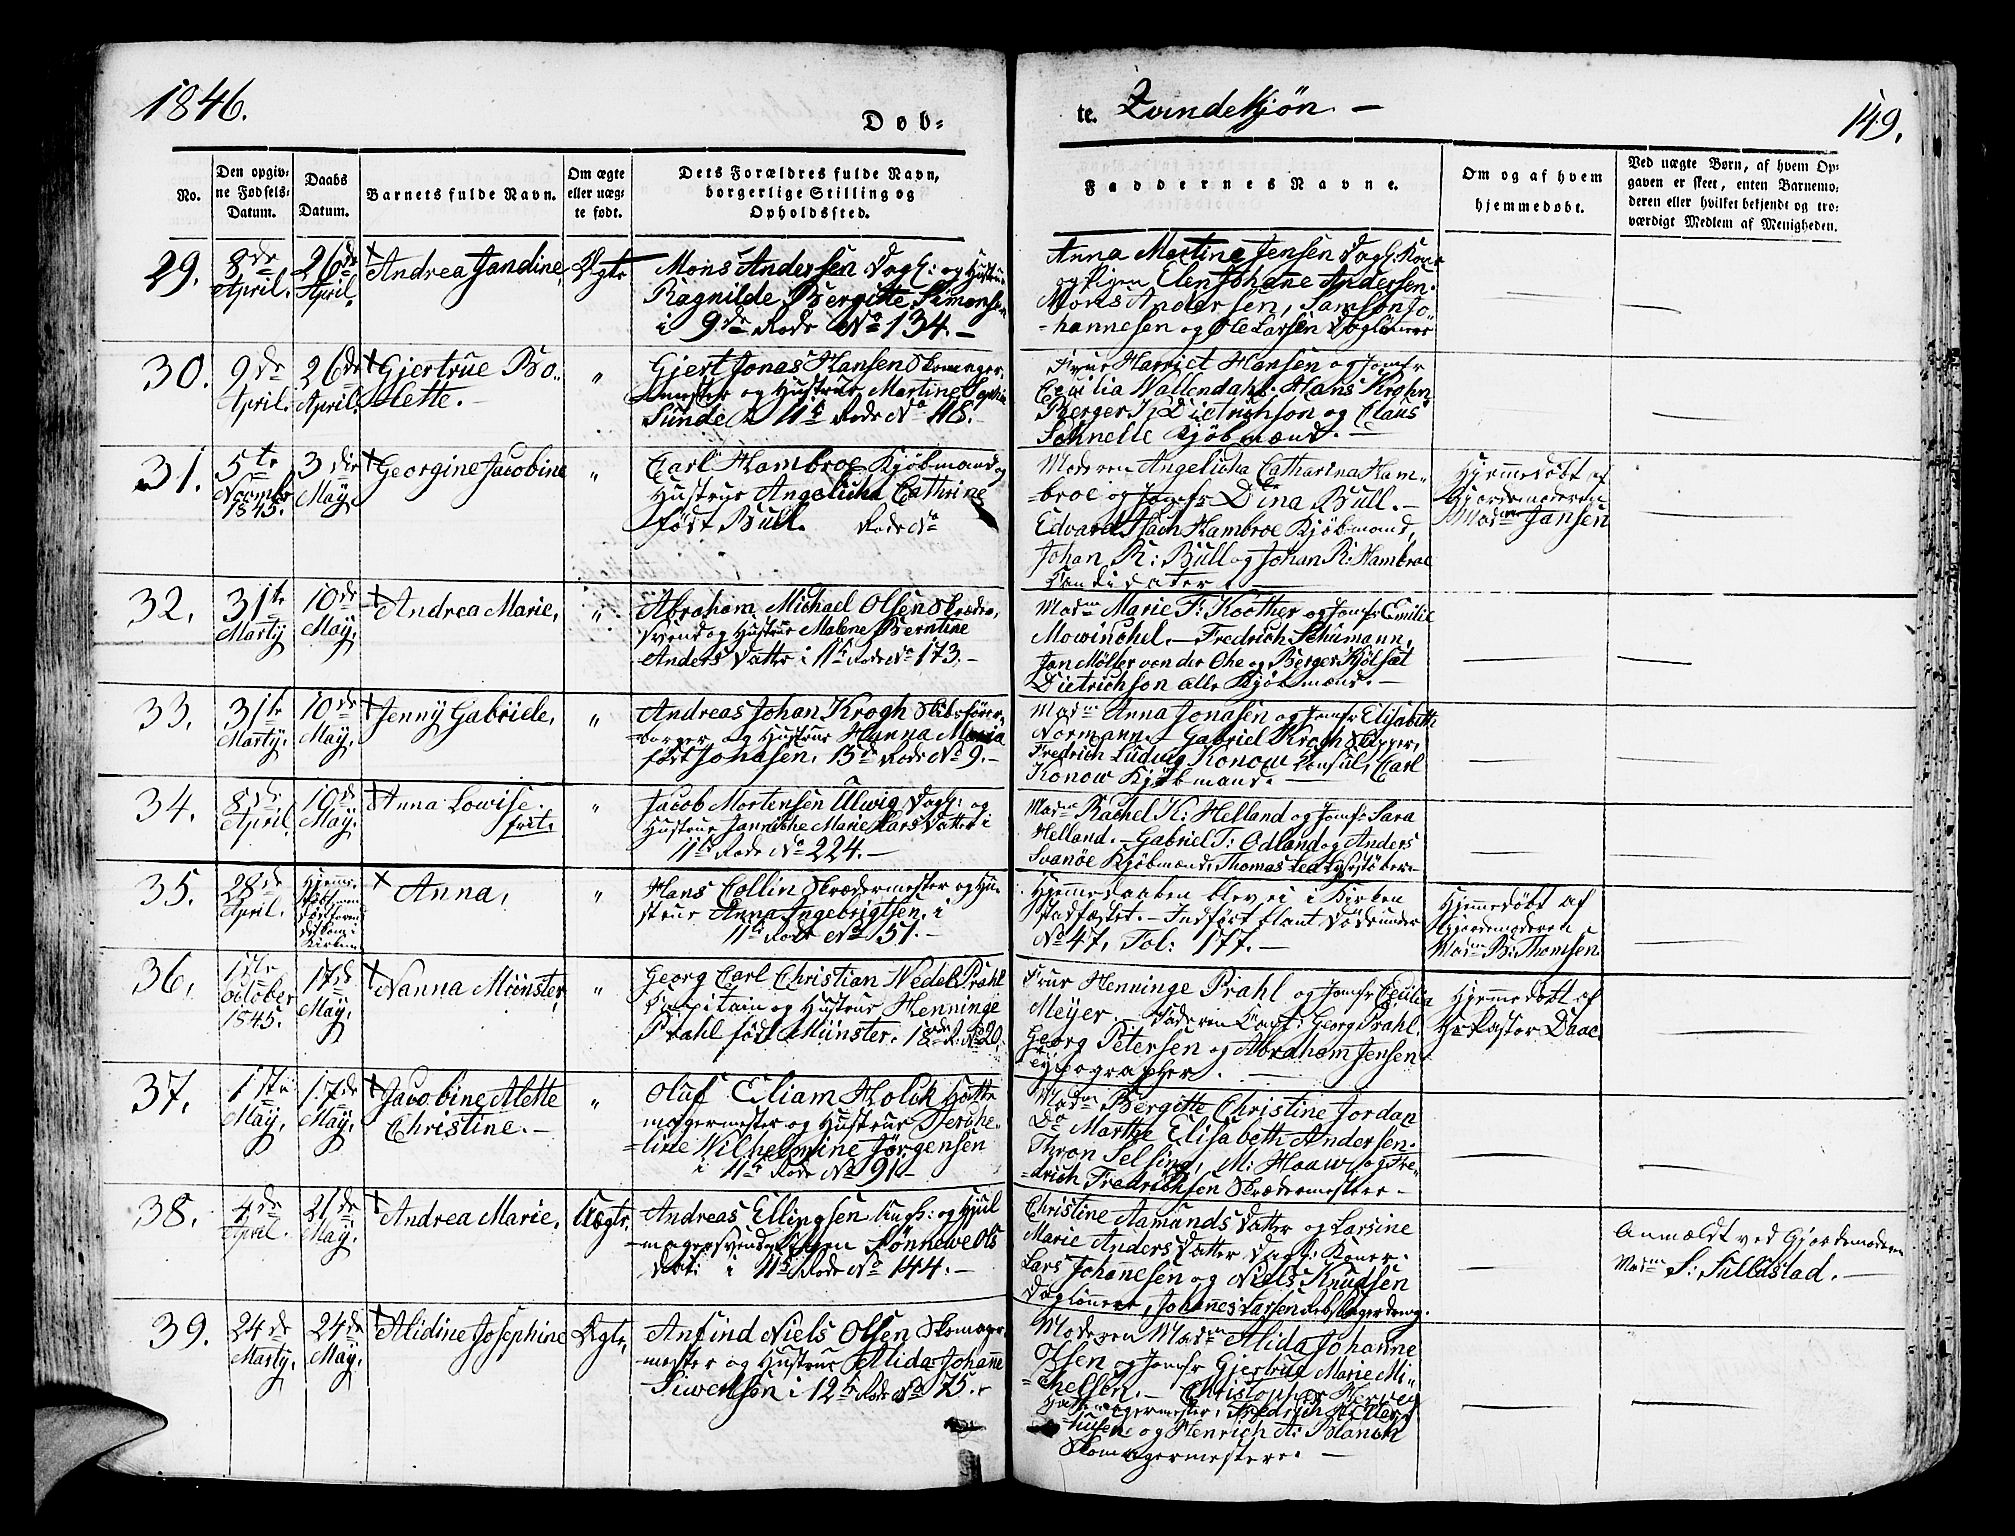 1846.
Døb-
te. Qvindekjøn. —
149.
No.
Den opgiv-
ne Fødsels-
Datum.
Daabs
Datum.
Barnets fulde Navn.
Om ægte
eller uæg-
te født.
Dets Forældres fulde Navn,
borgerlige Stilling og
Opholdssted.
Faddernes Navne.
Om og af hvem
hjemmedøbt.
Ved uægte Børn, af hvem Op-
gaven er skeet, enten Barnemo-
deren eller hvilket bekjendt og tro-
værdigt Medlem af Menigheden.
29.
8de
April.
26de
April.
Andrea Jandine,
Ægte
Mons Andersen Dagl: og Hustrue
Ragnilde Bergitte Simonsen
i 9de Rode No 134. —
Anna Martine Jensen Dagl: Kone
og Pigen Elen Johane Andersen.
Mons Andersen, Samson Jo-
-hannesen og Ole Larsen Daglønere
30.
9de
April.
26de
April.
Gjertrue Bo-
lette. —
"
Gjert Jonas Hansen Skomager-
mester og Hustrue Martine Sophie
Sunde i 11te Rode No 48. —
Frue Harriet Hansen og Jomfr
Cecilia Wallendahl. Hans Krohn,
Berger K: Dietrichson og Claus
Schnelle Kjøbmænd. —
31.
5te
Novmbr
1845.
3die
May,
Georgine Jacobine
"
Carl Hambroe Kjøbmand og
Hustrue Angelicka Cathrine
født Bull. Rode No
Moderen Angelicka Catharina Ham-
-broe og Jomfr Dina Bull. —
Edvard Hambroe Kjøbmand,
Johan R: Bull og Johan R: Hambroe
Candidater.
Hjemmedøbt af
Gjordemoderen
Madme Jansen
32.
31te
Marty
10de
May,
Andrea Marie,
"
Abraham Michael Olsen Skræder-
svend og Hustrue Malene Berntine
Anders Datter i 11te Rode No 173. —
Madme Marie F: Koother og Jomfr Emilie
Mowinckel. — Fredrich Schumann,
Jan Møller von der Ohe og Berger Kjølset
Dietrichson alle Kjøbmænd. —
33.
31te
Marty.
10de
May,
Jenny Gabriele,
"
Andreas Johan Krogh Skibsfører-
-borger og Hustrue Hanna Maria
født Jonasen, 13de Rode No 9. —
Madme Anna Jonasen og Jomfr Elisabeth
Normann. — Gabriel Krogh Skipper,
Fredrich Ludvig Konow Consul, Carl
Konow Kjøbmand. —
34.
8de
April.
10de
May.
Anna Lowise.
"
Jacob Mortensen Ulwig Dagl: og
Hustrue Jannicke Marie Lars Datter i
11te Rode No 224. —
Madme Rachel K: Helland og Jomfr Sara
Helland. — Gabriel T: Odland og Anders
Svanøe Kjøbmænd, Thomas Lea Lysestøber. —
35.
28de
April.
Hjemme-
døbt men
død foren
det kom i
Kirken
Anna,
"
Hans Collin Skrædermester og Hu-
strue Anna Ingebrigtsen, i
11te Rode No 51. —
Hjemmedaaben blev ei i Kirken
stadfæstet. — Indført blant Døde under
No 47, Fol: 177. —
Hjemmedøbt af
Gjordemoderen
Madme B: Thomsen
36.
October
1845.
17de
May,
Nanna Münster,
"
Georg Carl Christian Wedel Prahl
Capitain og Hustrue Henninge
Prahl født Münster. 18de R: No 20.
Frue Henninge Prahl og Jomfr Cecilia
Meyer. — Faderen Capt: Georg Prahl.
Georg Petersen og Abraham Jensen
Typographer. —
Hjemmedøbt af
Hr Pastor Daae.
37.
1ste
May,
17de
May,
Jacobine Alette
Christine. —
"
Oluf Eliam Holck Hatte-
magermester og Hustrue
-line Wilhelmine Jørgensen
i 11te Rode No 91 —
Madme Bergitte Christine Jordan
Do Marthe Elisabeth Andersen.
Thron Selsing, M: Haaw, og Fre-
-drich Fredrichsen Skrædermestere —
38.
4de
April.
21de
May,
Andrea Marie,
Uægte,
Andreas Ellingsen Ungk: og Hjul
magersvend Pigen Sønnewe Ols
Datt: i 11te Rode No 144. —
Christine Aamunds Datter og Larsine
Marie Anders Datter Dagl: Koner.
Lars Johannesen og Niels Knudsen
Daglønnere, Johanes Larsen Rebslagerdreng.
Anmældt ved Gjordemoderen
Madme S: Sulldstad. —
39.
24de
Marty.
24de
May.
Alidine Josephine
Ægte,
Anfind Niels Olsen Skomager-
mester og Hustrue Alida Johanne
Siwertson i 12te Rode No 75. —
Moderen Madme Alida Johanne
Olsen og Jomfr Gjertrue Marie Mi-
-chelsen. — Christopher
Hattemagermester, Fredrich
og Henrich A: Blanck
Skomagermestere. —